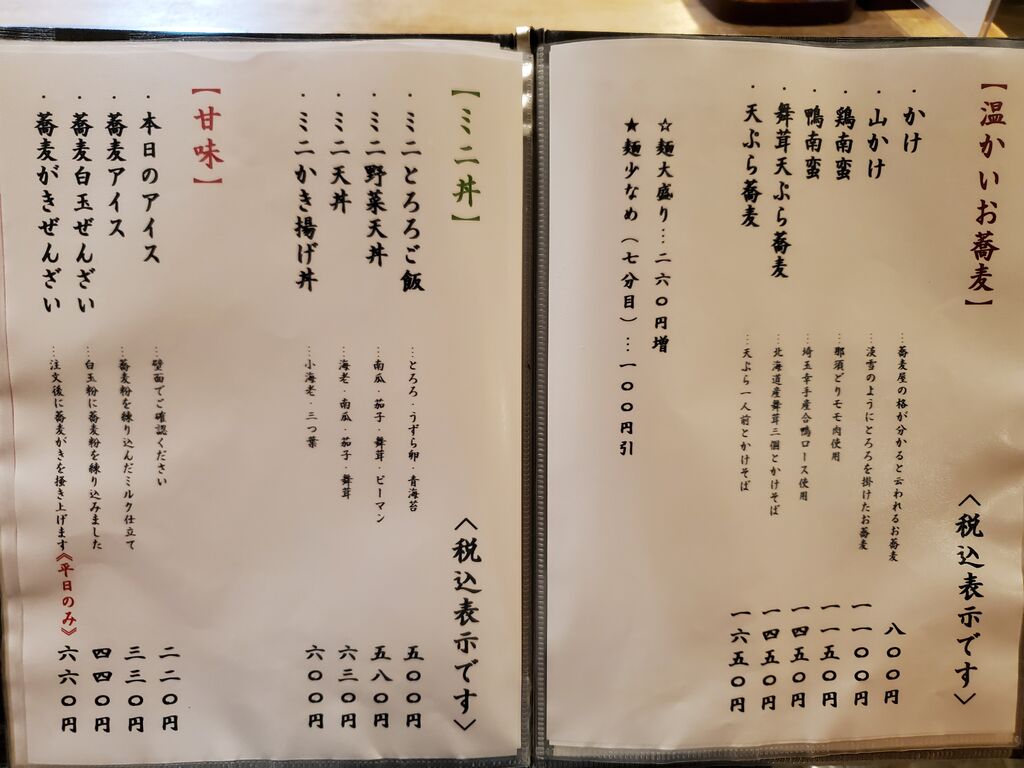 【温かいお蕎麦】
〈税込表示です〉
・かけ …蕎麦屋の格が分かると云われるお蕎麦 八〇〇円
・山かけ …淡雪のようにとろろを掛けたお蕎麦 一一〇〇円
・鶏南蛮 …那須どりモモ肉使用 一一五〇円
・鴨南蛮 …埼玉幸手産合鴨ロース使用 一四五〇円
・舞茸天ぷら蕎麦 …北海道産舞茸三個とかけそば 一四五〇円
・天ぷら蕎麦 …天ぷら一人前とかけそば 一六五〇円
☆麺大盛り…二六〇円増
★麺少なめ（七分目）…一〇〇円引
【ミニ丼】
〈税込表示です〉
・ミニとろろご飯 …とろろ・うずら卵・青海苔 五〇〇円
・ミニ野菜天丼 …南瓜・茄子・舞茸・ピーマン 五八〇円
・ミニ天丼 …海老・南瓜・茄子・舞茸 六三〇円
・ミニかき揚げ丼 …小海老・三つ葉 六〇〇円
【甘味】
・本日のアイス …壁面でご確認ください 二二〇円
・蕎麦アイス …蕎麦粉を練り込んだミルク仕立て 三三〇円
・蕎麦白玉ぜんざい …白玉粉に蕎麦粉を練り込みました 四四〇円
・蕎麦がきぜんざい …注文後に蕎麦がきを掻き上げます《平日のみ》 六六〇円